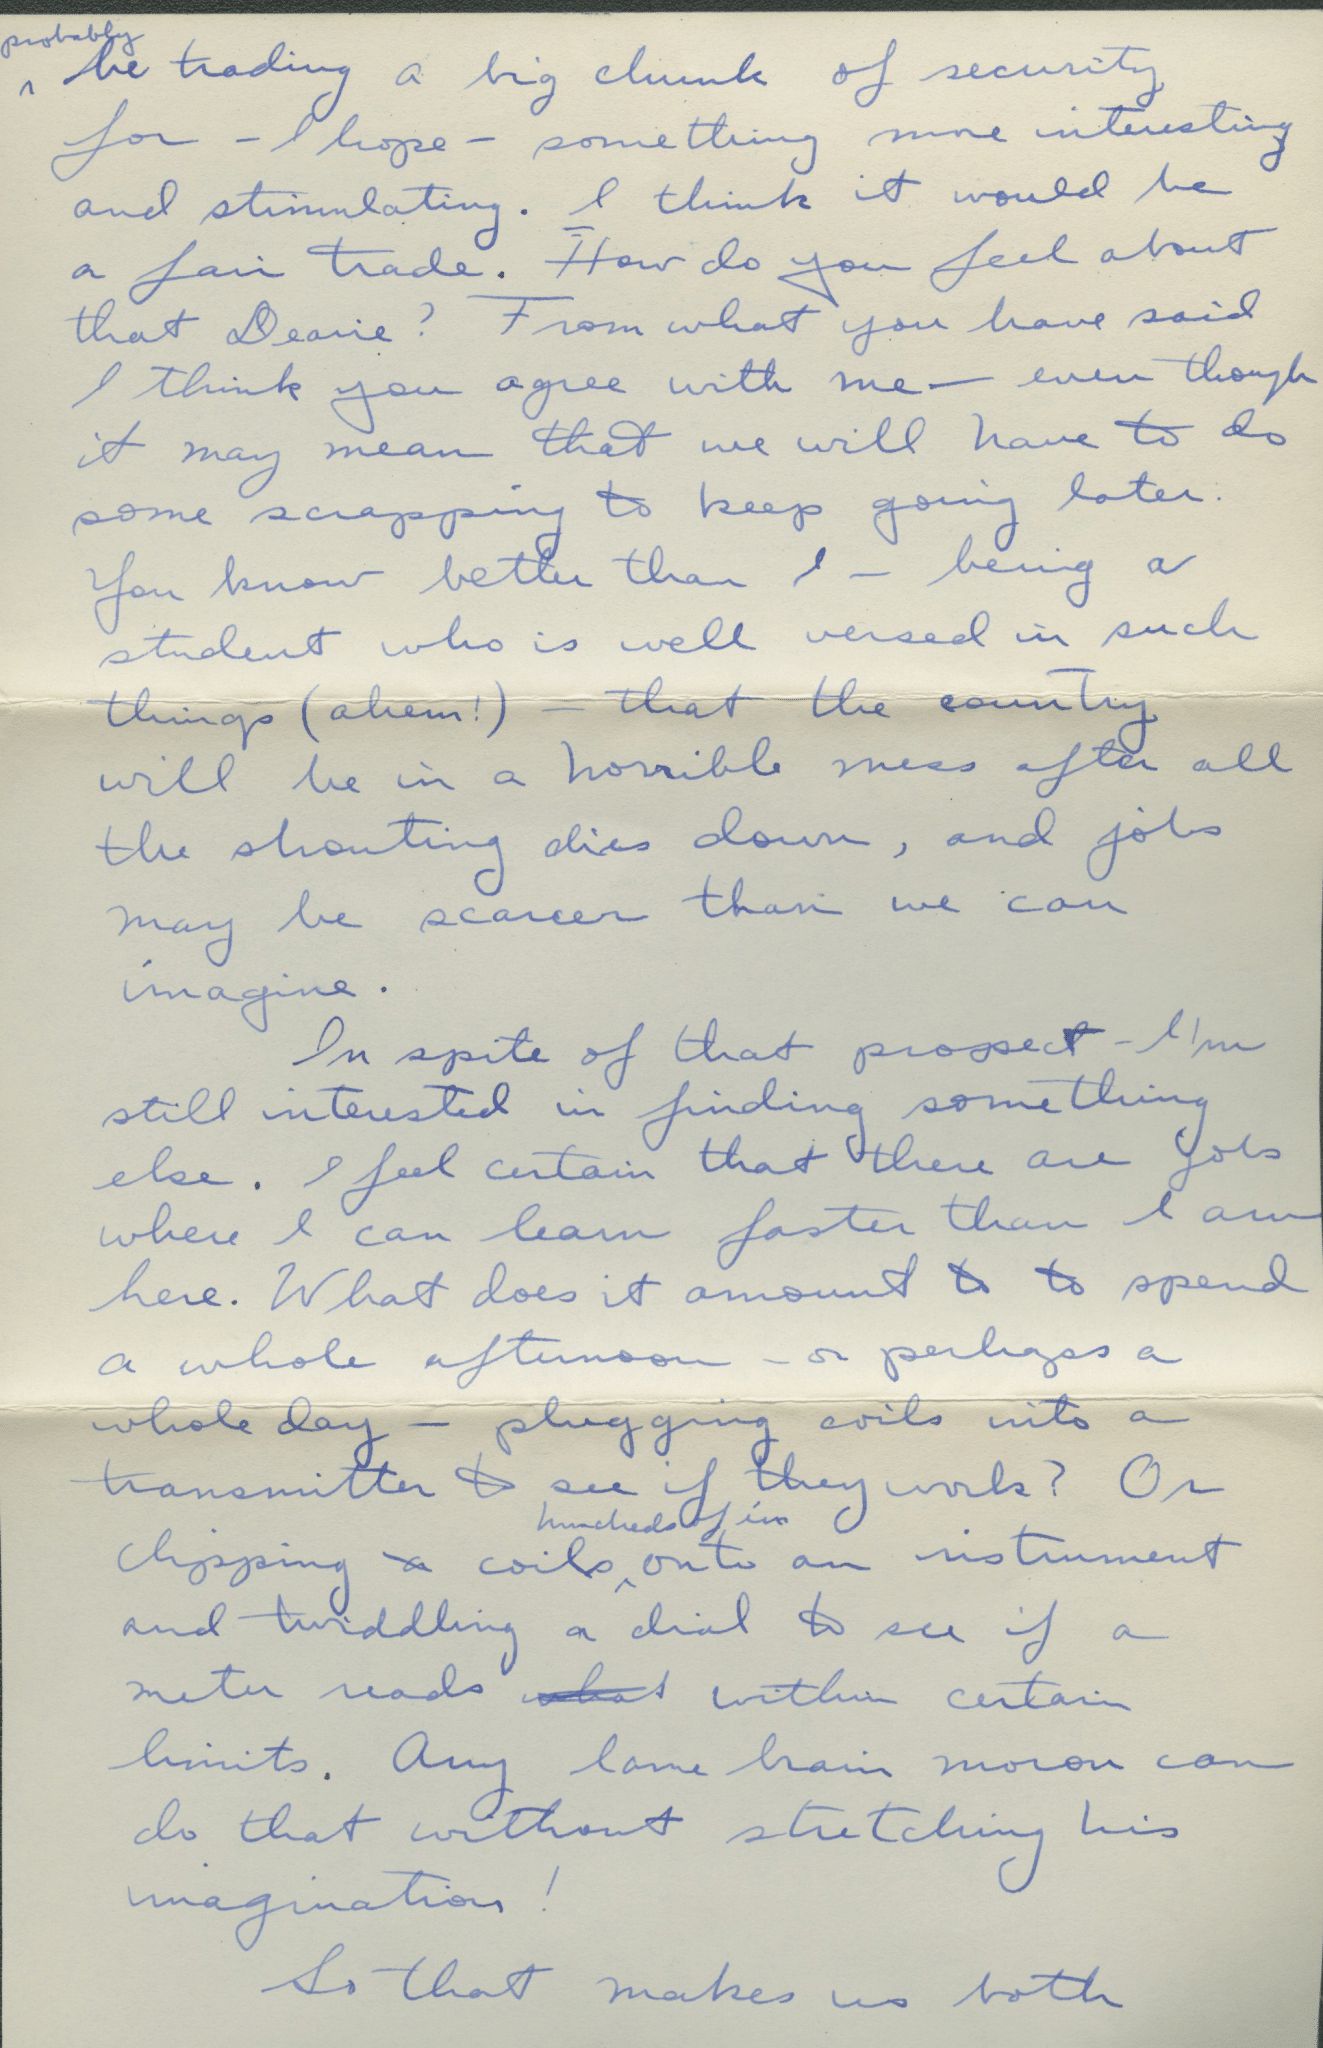 probably
^ be trading a big chunk of security
for - I hope - something more interesting
and stimulating. I think it would be
a fair trade. How do you feel about
that Dearie? From what you have said
I think you agree with me — even though
it may mean that we will have to do
some scrapping to keep going later.
You know better than I - being a
student who is well versed in such
things (ahem!) - that the country
will be in a horrible mess after all
the shouting dies down, and jobs
may be scarcer than we can
imagine.
In spite of that prospect - I'm
still interested in finding something
else. I feel certain that there are jobs
where I can learn faster than I am
here. What does it amount to to spend
a whole afternoon - or perhaps a
whole day — plugging coils into a
transmitter to see if they work? Or
hundreds of 'em
clipping a coils ^ onto an instrument
and twiddling a dial to see if a
meter reads what within certain
limits. Any lame brain moron can
do that without stretching his
imagination!
So that makes us both